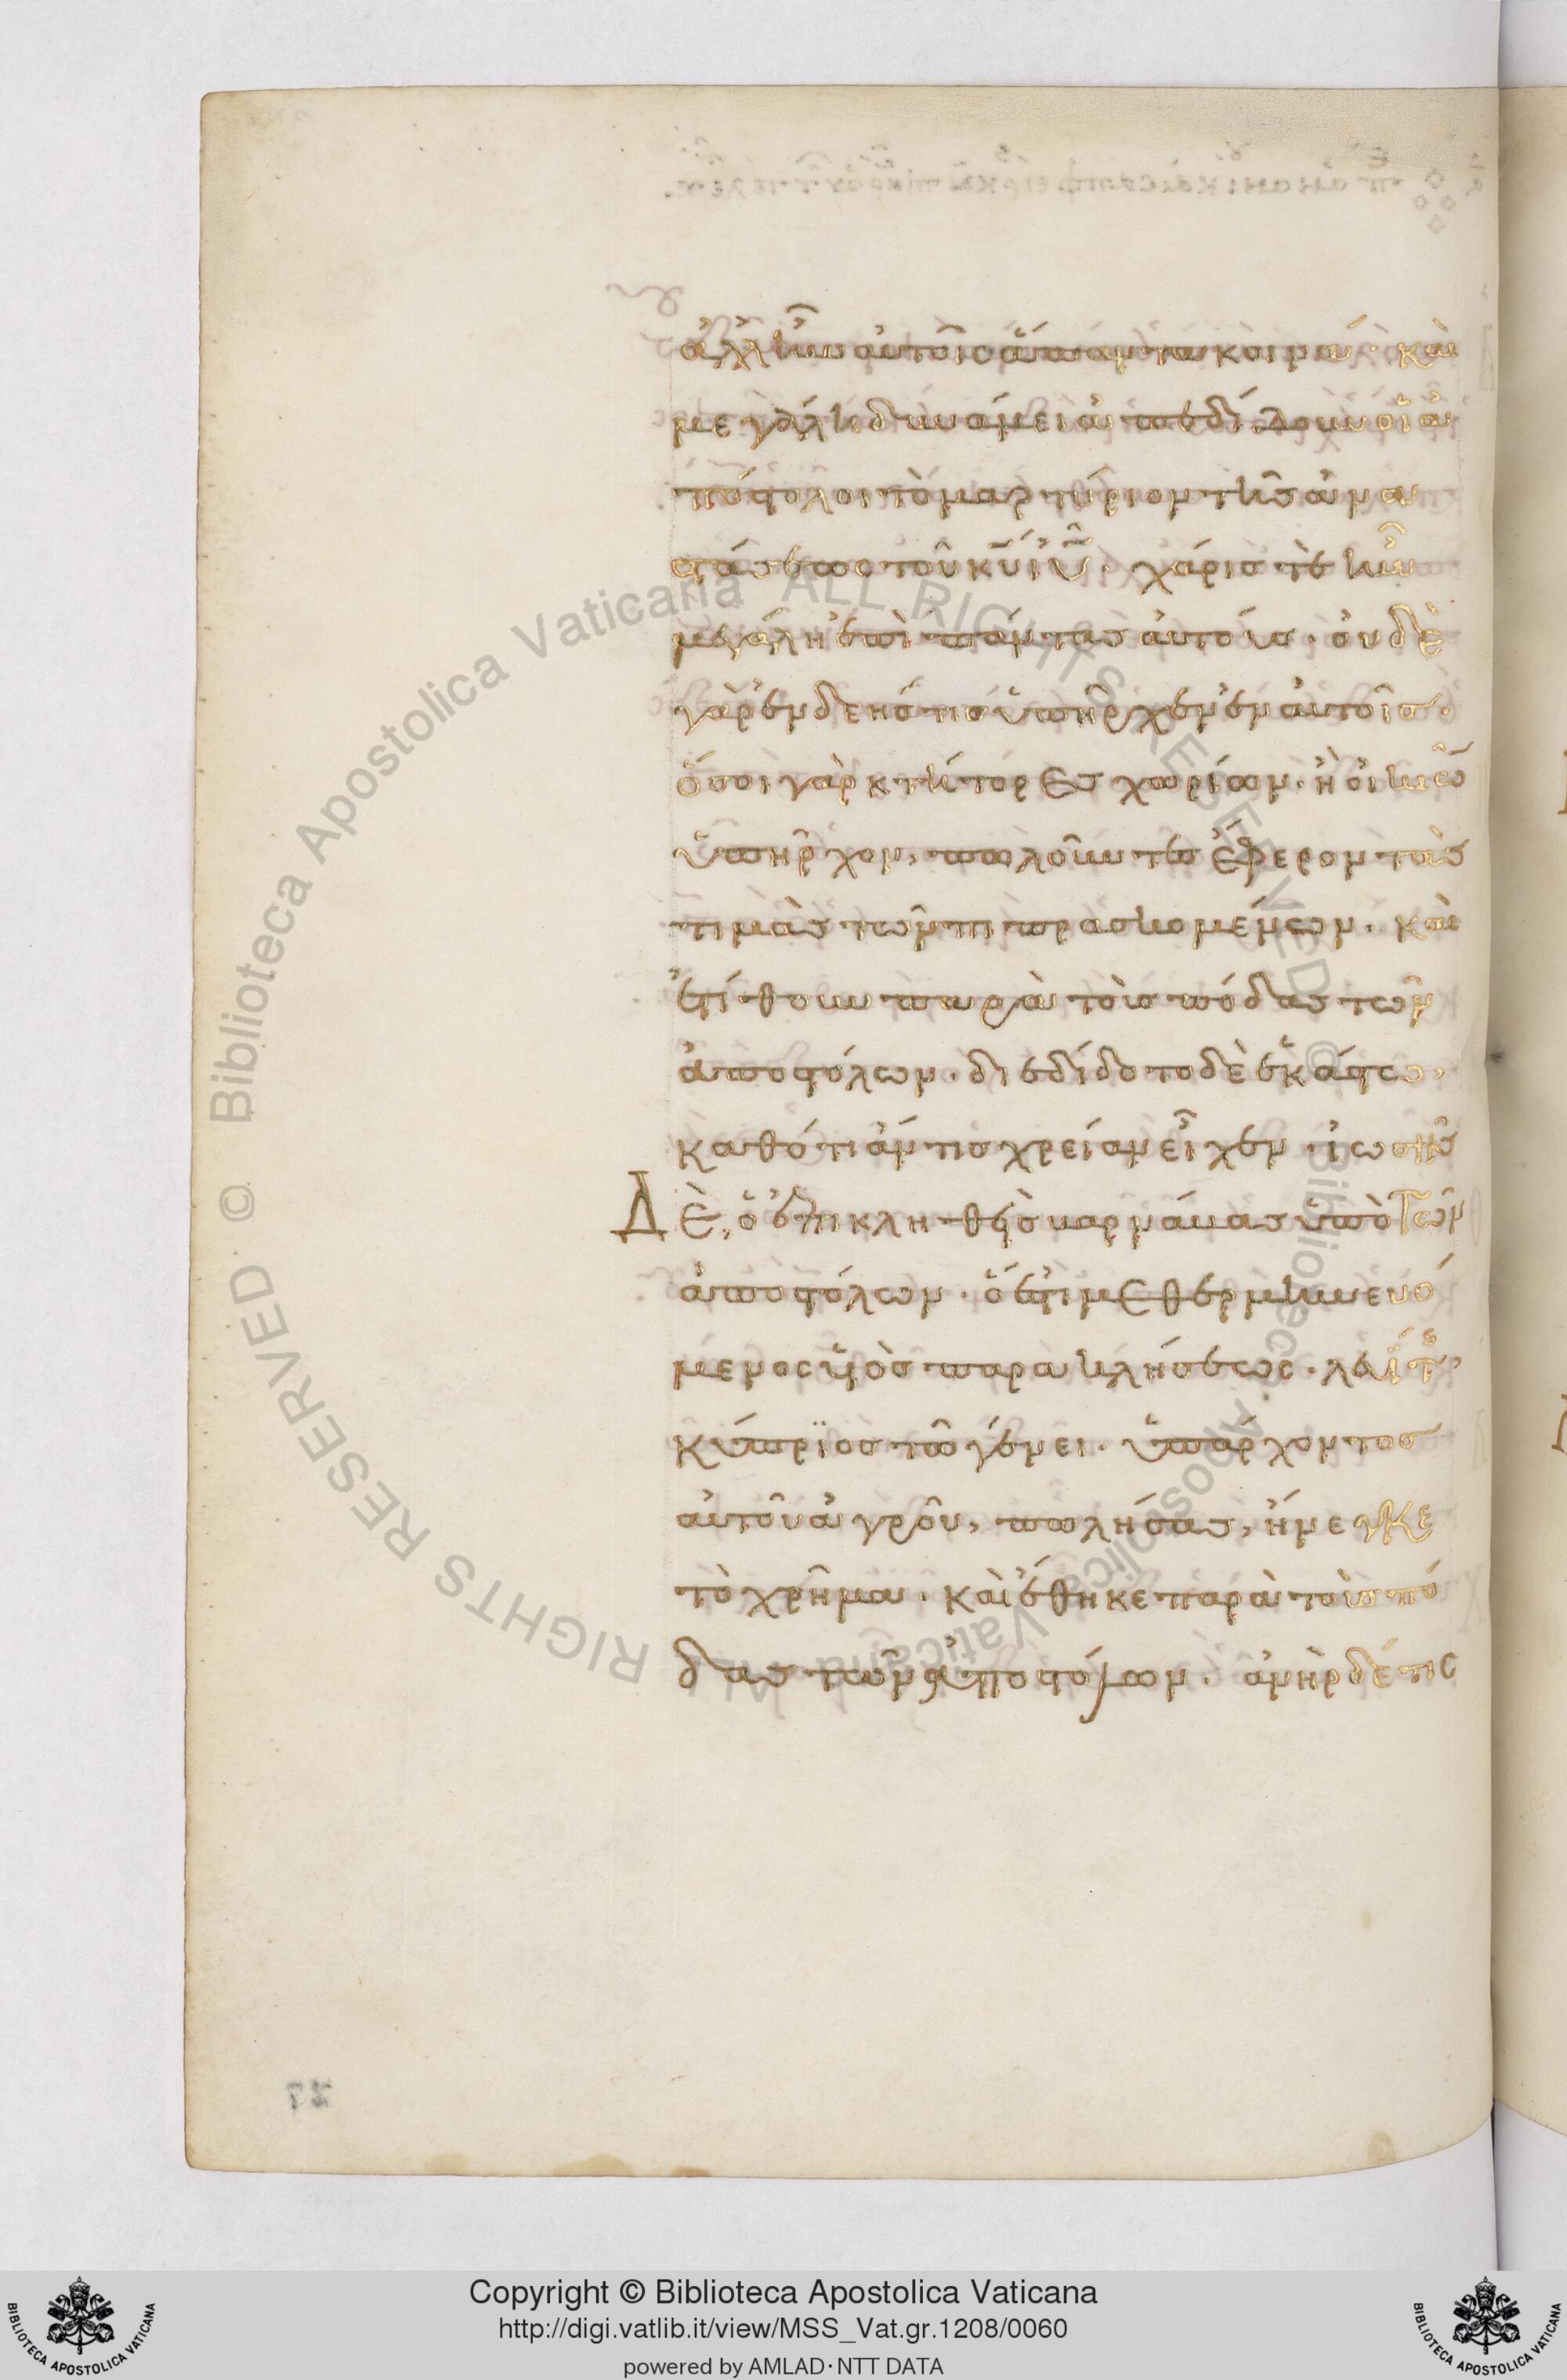 ἀλλ' ἦν αὐτοῖς ἅπαντα κοινά· καὶ
μεγάλη δυνάμει ἀπεδίδουν οἱ ἀ
πόστολοι τὸ μαρτύριον τῆς ἀνα
στάσεως τοῦ κ̅υ̅ ι̅υ̅· χάρις τὲ ἦν
μεγάλη ἐπὶ πάντας αὐτούς· οὐδὲ
γὰρ ἐνδεής τις ὑπῆρχεν ἐν αὐτοῖς·
ὅσοι γὰρ κτήτορες χωρίων· ἢ οἰκιῶ
ὑπῆρχον, πωλοῦντες ἔφερον τὰς
τιμὰς τῶν πιπρασκομένων· καὶ
ἐτίθουν παρὰ τοὺς πόδας τῶν
ἀποστόλων· διεδίδοτο δὲ ἑκάστω,
καθότι ἄν τις χρείαν εἶχεν· ἰωσῆς
Δὲ, ὁ ἐπικληθεὶς βαρνάβας ὑπὸ τῶν
ἀποστόλων· ὅ ἐστι μεθερμηνευό
μενος υἱὸς παρακλήσεως· λευΐτης
κύπριος τῶ γένει· ὑπάρχοντος
αὐτοῦ ἀγροῦ, πωλήσας, ἤνεγκε
τὸ χρῆμα· καὶ ἔθηκε παρὰ τοὺς πό
δας τῶν ἀποστόλων· ἀνὴρ δέ τις
Copyright © Biblioteca Apostolica Vaticana
http://digi.vatlib.it/view/MSS_Vat.gr.1208/0060
powered by AMLAD·NTT DATA